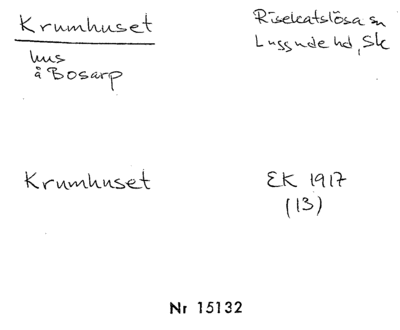 Krumhuset
Risekatslösa sn
hus
Luggude hd, Sk
å Bosarp
Krumhuset
EK 1917
(13)
Nr 15132